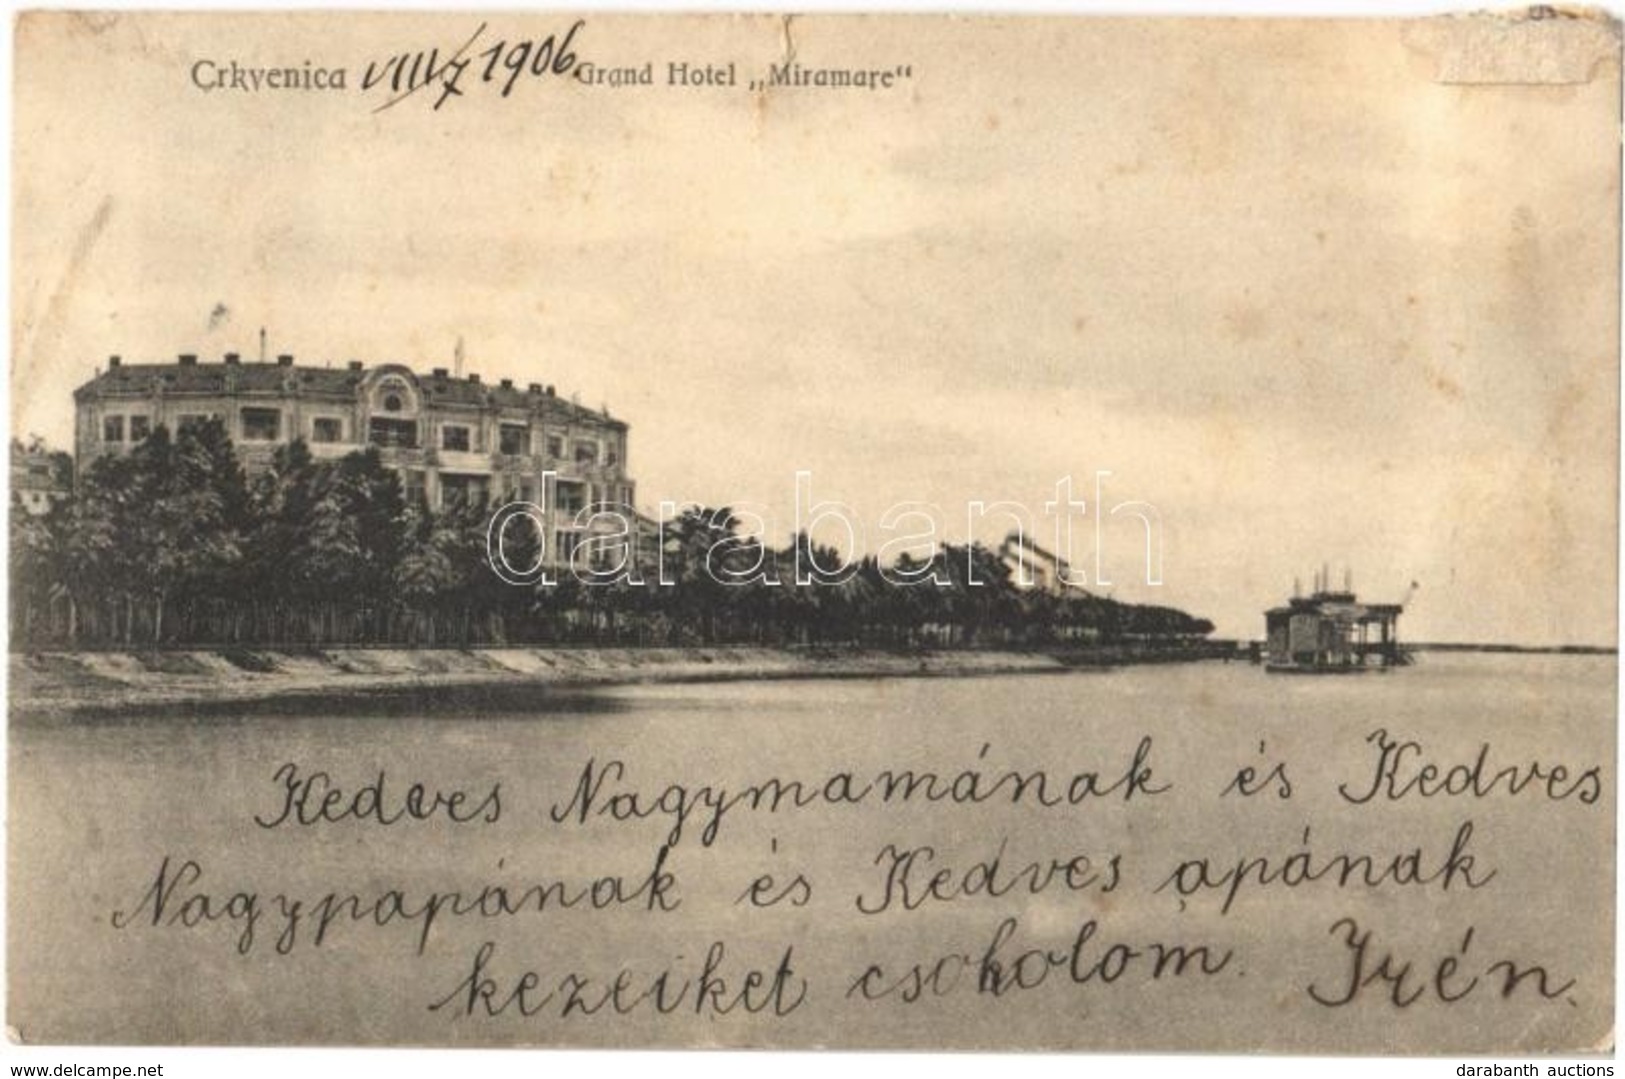 Crkvenica VIII/7 1906. Grand Hotel „Miramare“
darabanth
Kedves Nagymamának és Kedves
Nagypapának és Kedves apának
kezeiket csokolom. Irén.
www.delcampe.net
darabanth auctions